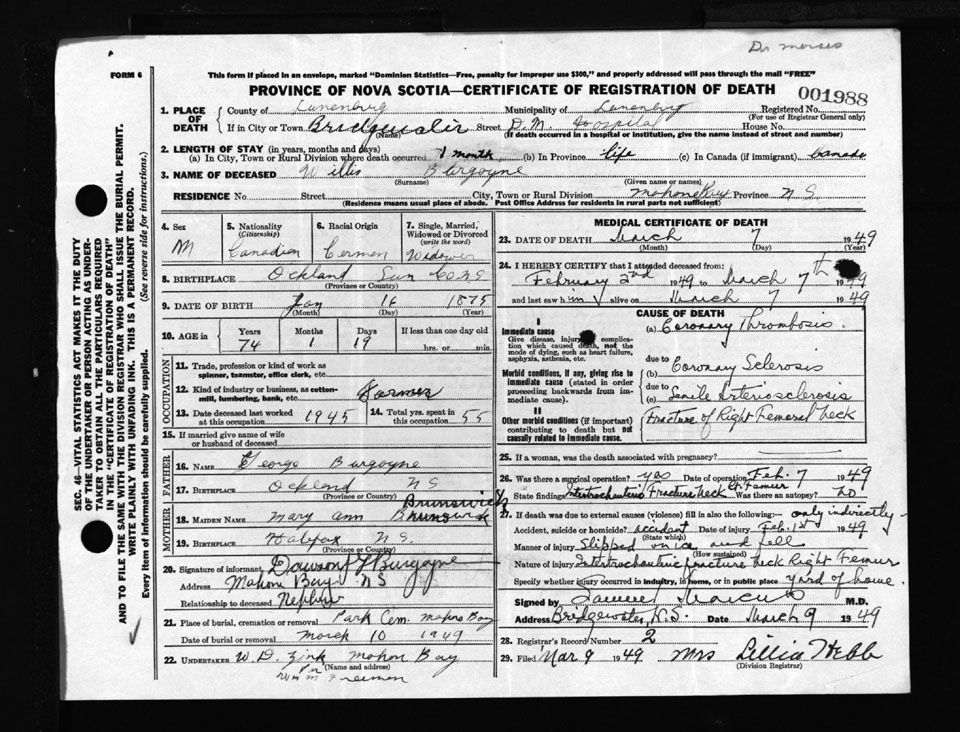 Dr morses
FORM 6
This form if placed in an envelope, marked "Dominion Statistics—Free, penalty for improper use $300," and properly addressed will pass through the mail "FREE"
PROVINCE OF NOVA SCOTIA—CERTIFICATE OF REGISTRATION OF DEATH
001988
1. PLACE OF DEATH County of Lunenburg Municipality of Lunenburg Registered No.
(For use of Registrar General only)
If in City or Town Street D.M. Hospital House No.
(Name) (If death occurred in a hospital or institution, give the name instead of street and number)
2. LENGTH OF STAY (in years, months and days)
(a) In City, Town or Rural Division where death occurred 1 month (b) In Province life (c) In Canada (if immigrant) Canada
3. NAME OF DECEASED Willis Burgoyne
(Surname) (Given name or names)
RESIDENCE No. Street City, Town or Rural Division Mahone Bay Province N S
(Residence means usual place of abode. Post Office Address for residents in rural parts not sufficient)
4. Sex M
5. Nationality (Citizenship) Canadian
6. Racial Origin German
7. Single, Married, Widowed or Divorced (write the word) Widower
8. BIRTHPLACE Ockland Lun Co N S
(Province or Country)
9. DATE OF BIRTH Jan 16 1875
(Month) (Day) (Year)
10. AGE in Years Months Days If less than one day old
74 1 19 hrs. or min.
OCCUPATION
11. Trade, profession or kind of work as spinner, teamster, office clerk, etc.
12. Kind of industry or business, as cotton-mill, lumbering, bank, etc. Farmer
13. Date deceased last worked at this occupation 1945 14. Total yrs. spent in 55
15. If married give name of wife or husband of deceased
FATHER
16. NAME George Burgoyne
17. BIRTHPLACE Ockland N S
(Province or Country)
MOTHER
Brunswick
18. MAIDEN NAME Mary Ann Brunswick
19. BIRTHPLACE Halifax N.S.
(Province or Country)
20. Signature of informant Dawson Burgoyne
Address Mahone Bay N S
Relationship to deceased Nephew
21. Place of burial, cremation or removal Park Cem. Mahone Bay
Date of burial or removal March 10 1949
22. UNDERTAKER W. D. Zink Mahon Bay
(Name and address)
Freeman
MEDICAL CERTIFICATE OF DEATH
23. DATE OF DEATH March 7 1949
(Month) (Day) (Year)
24. I HEREBY CERTIFY that I attended deceased from:
February 2nd 1949 to March 7th 1949
and last saw him alive on March 7 1949
CAUSE OF DEATH
I
Immediate cause
Give disease, injury or complication which caused death, not the mode of dying, such as heart failure, asphyxia, asthenia, etc.
(a) Coronary Thrombosis.
due to
Morbid conditions, if any, giving rise to immediate cause (stated in order proceeding backwards from immediate cause).
(b) Coronary Sclerosis
due to
(c) Senile Arteriosclerosis
II
Other morbid conditions (if important) contributing to death but not causally related to immediate cause.
Fracture of Right Femoral Neck
25. If a woman, was the death associated with pregnancy?
26. Was there a surgical operation? yes Date of operation Feb. 7 1949
State findings Intertrochanteric Fracture Neck Rt Femur Was there an autopsy? no
27. If death due to external causes (violence) fill in also the following:- only indirectly-
Accident, suicide or homicide? accident Date of injury Feb. 1st 1949
(State which)
Manner of injury Slipped on ice and fell
(How sustained)
Nature of injury Intertrochanteric fracture neck Right Femur
Specify whether injury occurred in industry, in home, or in public place yard of home.
Signed by Samuel Marcus M.D.
Address Bridgewater, N.S. Date March 9 1949
28. Registrar's Record Number 2
29. Filed Mar 9 1949 Mrs Lillia Webb
(Division Registrar)
SEC. 46—VITAL STATISTICS ACT MAKES IT THE DUTY
OF THE UNDERTAKER OR PERSON ACTING AS UNDER-
TAKER TO OBTAIN ALL THE PARTICULARS REQUIRED
IN THE "CERTIFICATE OF REGISTRATION OF DEATH"
AND TO FILE THE SAME WITH THE DIVISION REGISTRAR WHO SHALL ISSUE THE BURIAL PERMIT.
WRITE PLAINLY WITH UNFADING INK. THIS IS A PERMANENT RECORD.
Every item of information should be carefully supplied. (See reverse side for instructions.)